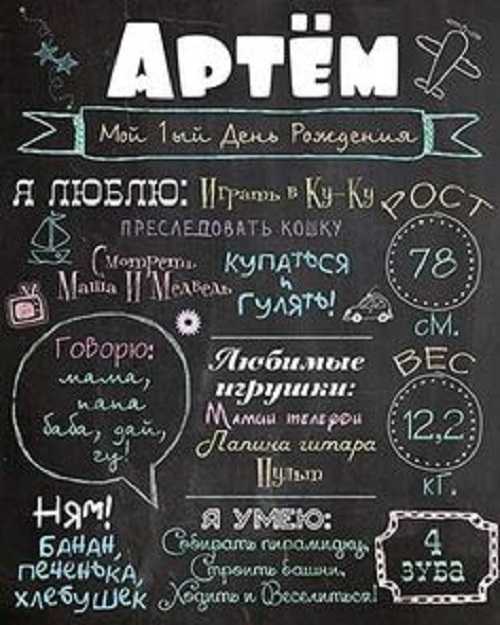 АРТЁМ
Мой 1ый День Рождения
Я ЛЮБЛЮ: Играть в Ку-Ку
ПРЕСЛЕДОВАТЬ КОШКУ
Смотреть
Маша И Медведь
КУПАТЬСЯ
И
ГУЛЯТЬ!
РОСТ
78
СМ.
Говорю:
мама,
папа
баба, дай,
гу!
Любимые
игрушки:
Мамин телефон
Папина гитара
Пульт
ВЕС
12,2
КГ.
Ням!
БАНАН,
ПЕЧЕНЬКА,
ХЛЕБУШЕК
Я УМЕЮ:
Собирать пирамидку,
Строить башни,
Ходить и Веселиться!
4
ЗУБА